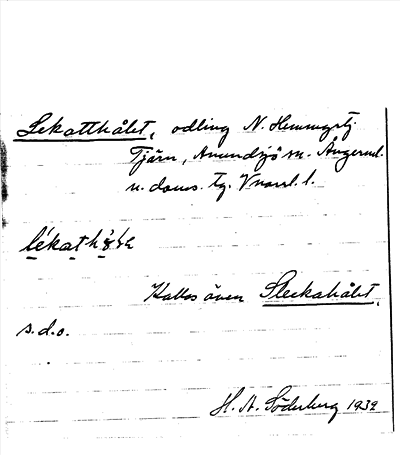 Lekatthålet, odling N. Hemmyrtj.
Tjärn, Anundsjö sn. Ångerml.
n. doms. tg. Vnorrl. l.
Kallas även Sleekahålet,
s.d.o.
H. A. Söderberg 1932